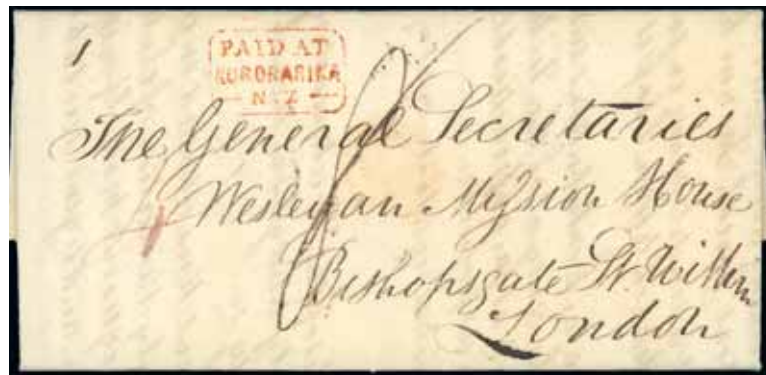 1
PAID AT
KORORARIKA
N.Z
The General Secretaries
Wesleyan Mission House
Bishopsgate St. Within
London